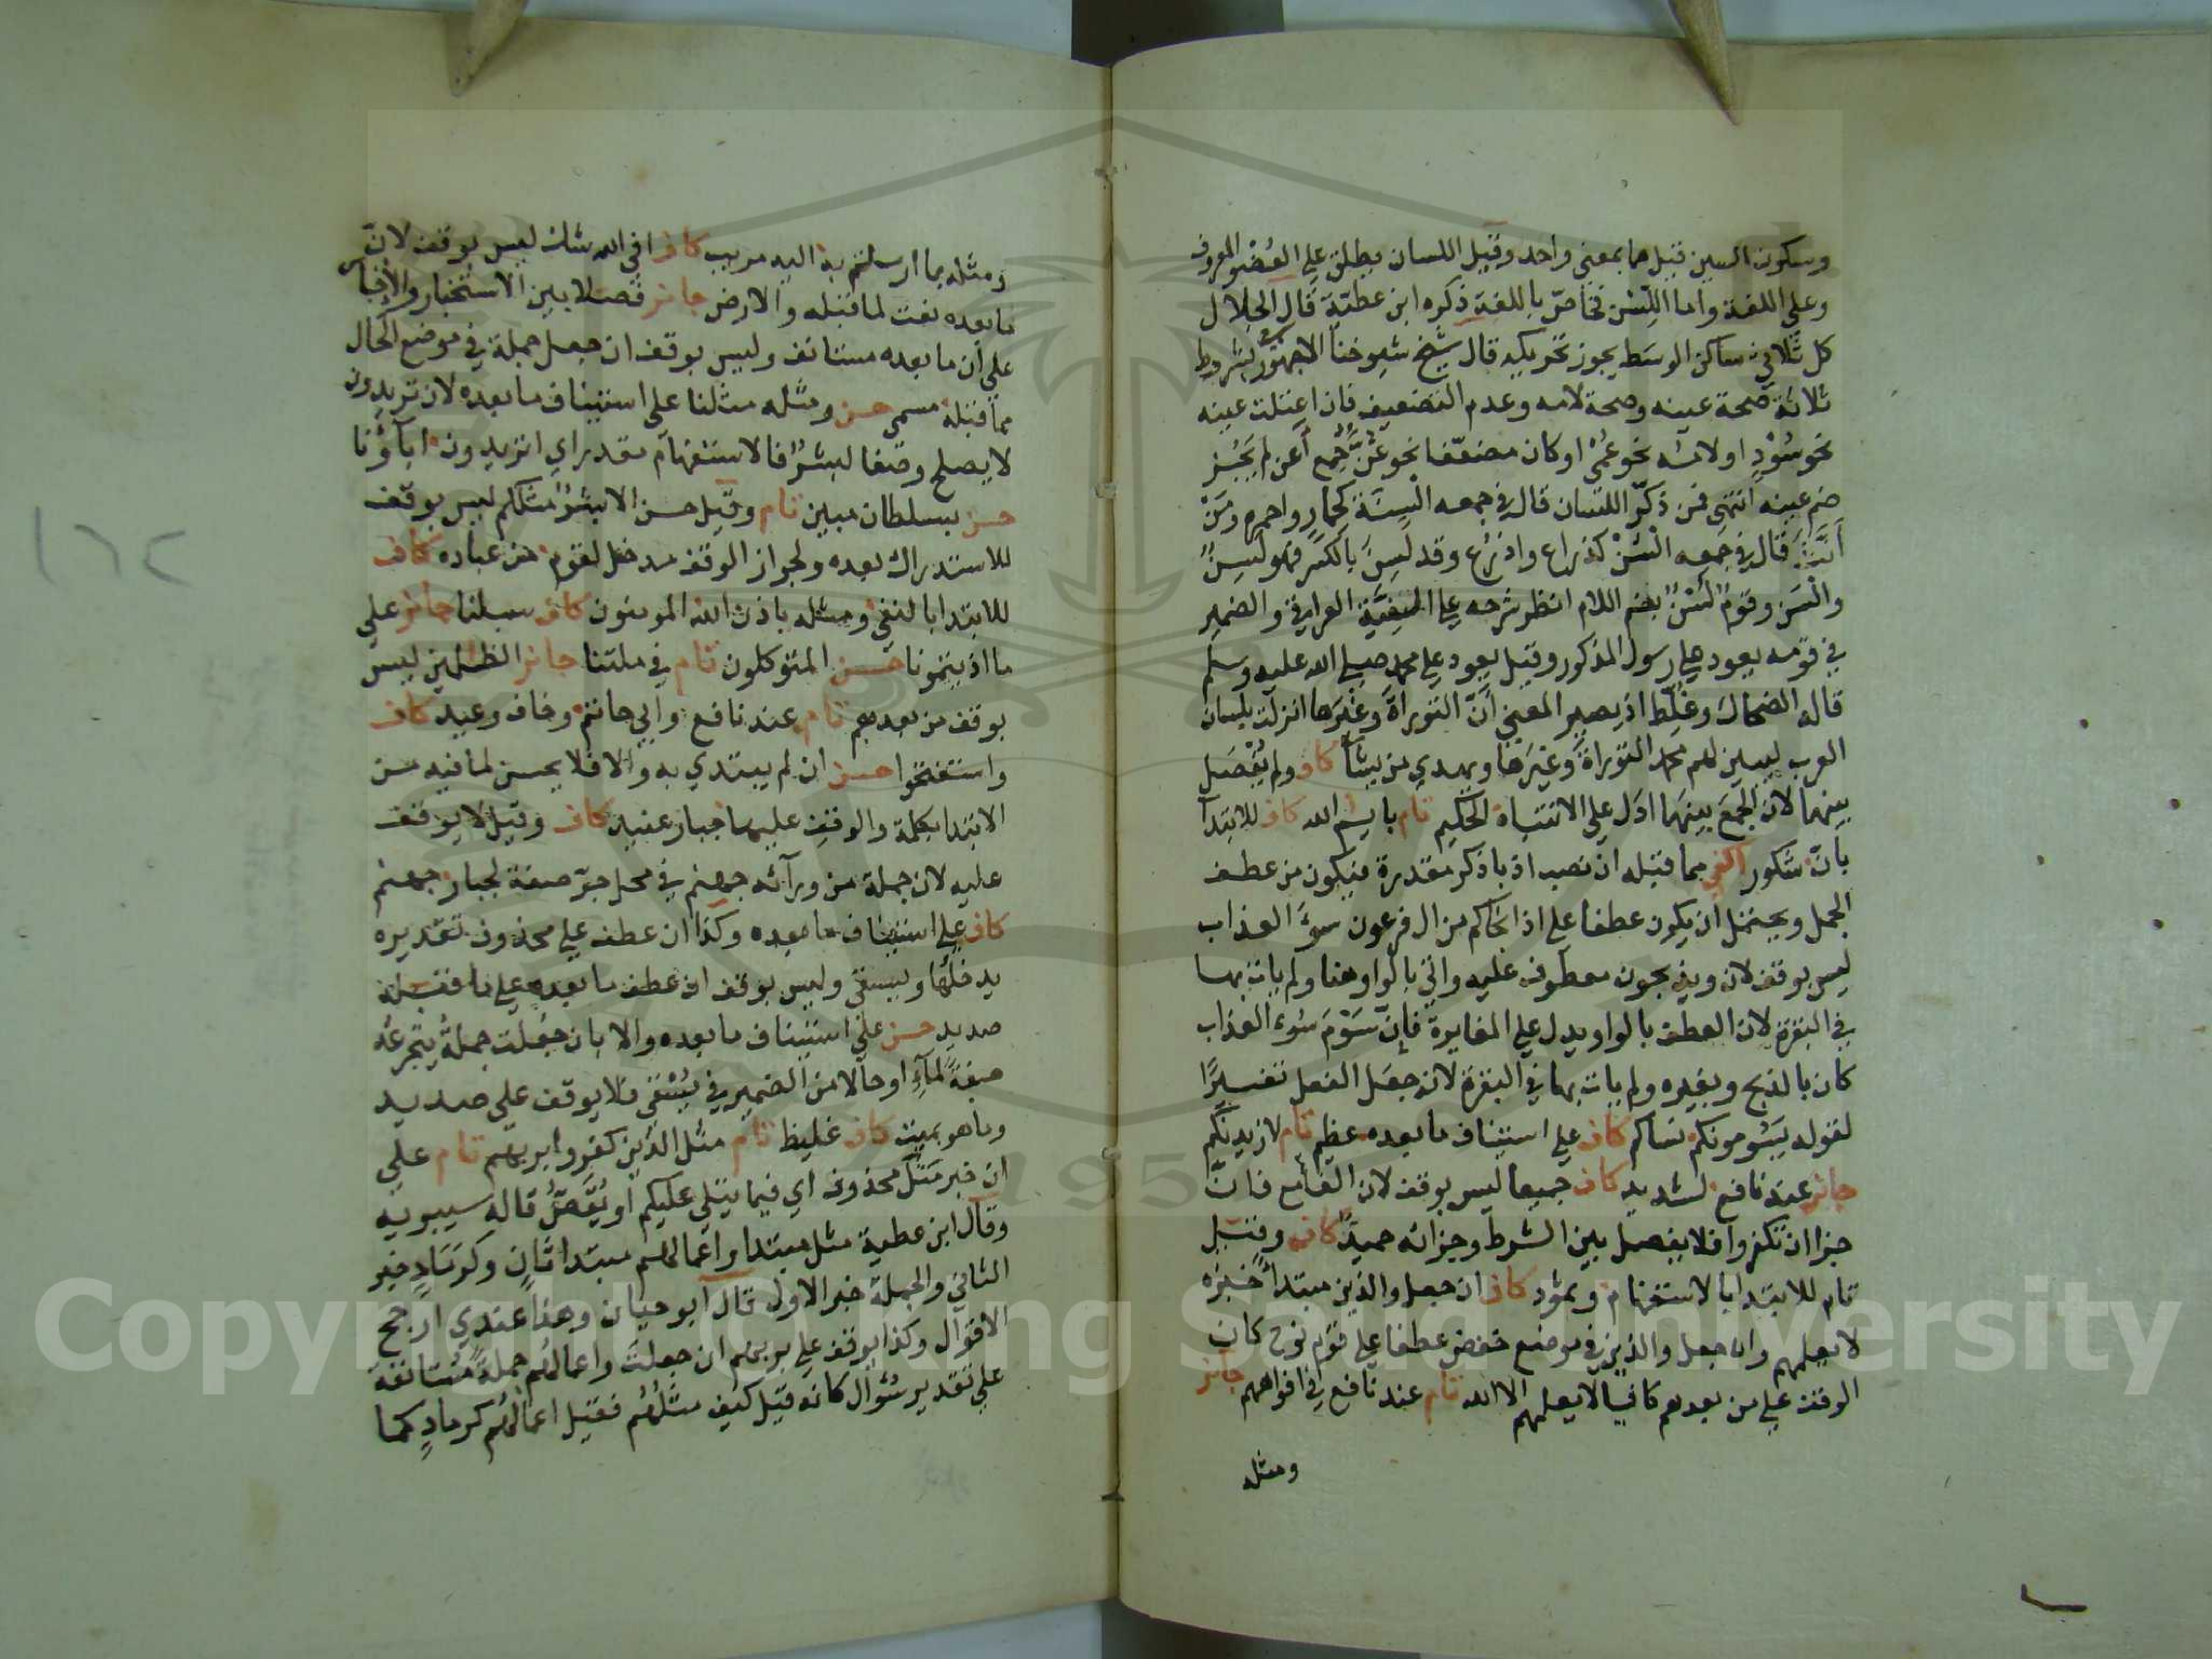 وسكون السين قيل هما بمعنى واحد وقيل اللسان يطلق على العُضْو المعروف
وعلى اللغة واما اللِّسْن فخاصّ باللغة ذكره ابن عطيّة قال الجلال
كل ثلاثي ساكن الوسَط يجوز تحريكه قال شيخ شيوخنا الاجهوريّ بشروط
ثلاثة صحة عينه وصحة لامه وعدم التضعيف فان اعتلت عينه
نحو سُوْدٍ او لامه نحو عُمْي او كان مضعّفا نحو غُنّ جمع أغن لم يَجُز
ضم عينه انتهى فمن ذكّر اللسان قال في جمعه الْسِنَة كحمارٍ واحمرة ومَنْ
أنَّثَ قال في جمعه الْسُنْ كذراع واذرُع وقد لَسِنَ بالكسر فهو لَسِنٌ
والْسَن وقومٌ لُسْنٌ بضم اللام انظر شرحه على الفيّة العراقي والضمير
في قومه يعود على رسول المذكور وقيل يعود على محمد صلى الله عليه وسلم
قاله الضحاك وغُلّط اذ يصير المعنى أنّ التوراةَ وغيرَها انزلت بلسان
العرب ليبين لهم محمد التوراةَ وغيرَها ويهدي من يشآ كاف ولم يُفْصَل
بينهما لان الجمعَ بينَهما ادَل على الانتباه الحكيم تام بايـٰم الله كاف للابتدآ
بانّ شكور اكفى مما قبله ان نصب اذ باذكر مقدرة فيكون من عطف
الجمل ويحتمل ان يكون عطفا على اذ انجاكم من ال فرعون سوءَ العذاب
ليس بوقف لان ويذبحون معطوف عليه واتى بالواو هنا ولم يات بها
في البقرة لان العطف بالواو يدل على المغايرة فإنّ سَوْمَ سُوء العذاب
كان بالذبح وبغيره ولم يات بها في البقرة لانه جعَل الفعل تفسيرًا
لقوله يَسُومونكم نساكم كاف على استيناف ما بعده عظيم تام لازيدنّكم
جائز عند نافع لشديد كاف جميعا ليس بوقف لان الفآ مع فانّ
جزا ان تكفروا فلا يفصل بين الشرط وجزائه حميدٌ كاف وقيل
تام للابتدا بالاستفهام وثمود كاف ان جعل والذين مبتدأ خبره
لا يعلمهم وان جعل والذين في موضع خفض عطفا على قوم نوح كان
الوقف على من بعدهم كافيا لا يعلمهم الا الله تام عند نافع في افواههم جائز
ومثله
ومثله بما ارسلتم به اليه مريب كاف افي الله شك ليس بوقف لانّ
ما بعده نعت لما قبله والارض جائز فصلا بين الاستخبار والإخبار
على أن ما بعده مستانف وليس بوقف ان جعل جملة في موضع الحال
مما قبله مسمى حسن ومثله مثلنا على استيناف ما بعده لان تريدون
لا يصلح وصفا لبشرٌ فالاستفهام مقدر اي اتريدون ابآؤنا
حسن بسلطان مبين تام وقيل حسن الا بشرٌ مثلكم ليس بوقف
للاستدراك بعده ولجواز الوقف مدخل لقوم من عباده كاف
للابتدا بالنفي ومثله باذن الله المومنون كاف سبلنا جائز على
ما اذيتمونا حسن المتوكلون تام في ملتنا جائز الظـلمين ليس
بوقف من بعدهم تام عند نافع وابي حاتم وخاف وعيد كاف
واستفتحوا حسن ان لم يبتدي به والا فلا يحسن لما فيه من
الابتدا بكلمة والوقفِ عليها جبار عنيد كاف وقيل لا يوقف
عليه لان جملة من ورآئه جهنم في محل جرّ صفة لجبار جهنم
كاف على استيناف ما بعده وكذا ان عطف على محذوف تقديره
يدخلُها ويسقى وليس بوقف ان عطف ما بعده على ما قبله
صديد حسن على استيناف ما بعده والا بان جعلت جملةُ يتجرعُه
صفةً لمآءٍ او حالا من الضمير في يُسْقى فلا يوقف على صديد
وما هو بميت كاف غليظ تام مثل الذين كفروا بربهم تام على
ان خبر مَثَلُ محذوف اي فيما يتلى عليكم أو يُقَصُّ قاله سيبويه
وقال ابن عطية مثل مبتدا واعمالهم مبتدا ثانٍ وكرَمَادٍ خبر
الثاني والجملة خبر الاول قال ابو حيان وهذا عندي ارجح
الاقوال وكذا يوقف على بربهم ان جعلتَ واعمالُهم جملةً مُستانفة
على تقدير سُؤال كانه قيل كيف مثلُهُم فقيل اعمالُهُم كرمادٍ كما
١٦٢
Copyright © King Saud University
1957